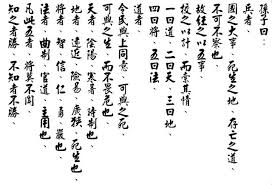 孫子曰：
兵者、
國之大事、死生之地、存亡之道、
不可不察也
故經之以五事、
校之以計、而索其情
一曰道、二曰天、三曰地、
四曰將、五曰法、
道者、
令民與上同意、可與之死、
可與之生、而不畏危也
天者、陰陽、寒暑、時制也
地者、遠近、險易、廣狹、死生也
將者、智、信、仁、勇、嚴也
法者、曲制、官道、主用也
凡此五者、將莫不聞
知之者勝、不知者不勝